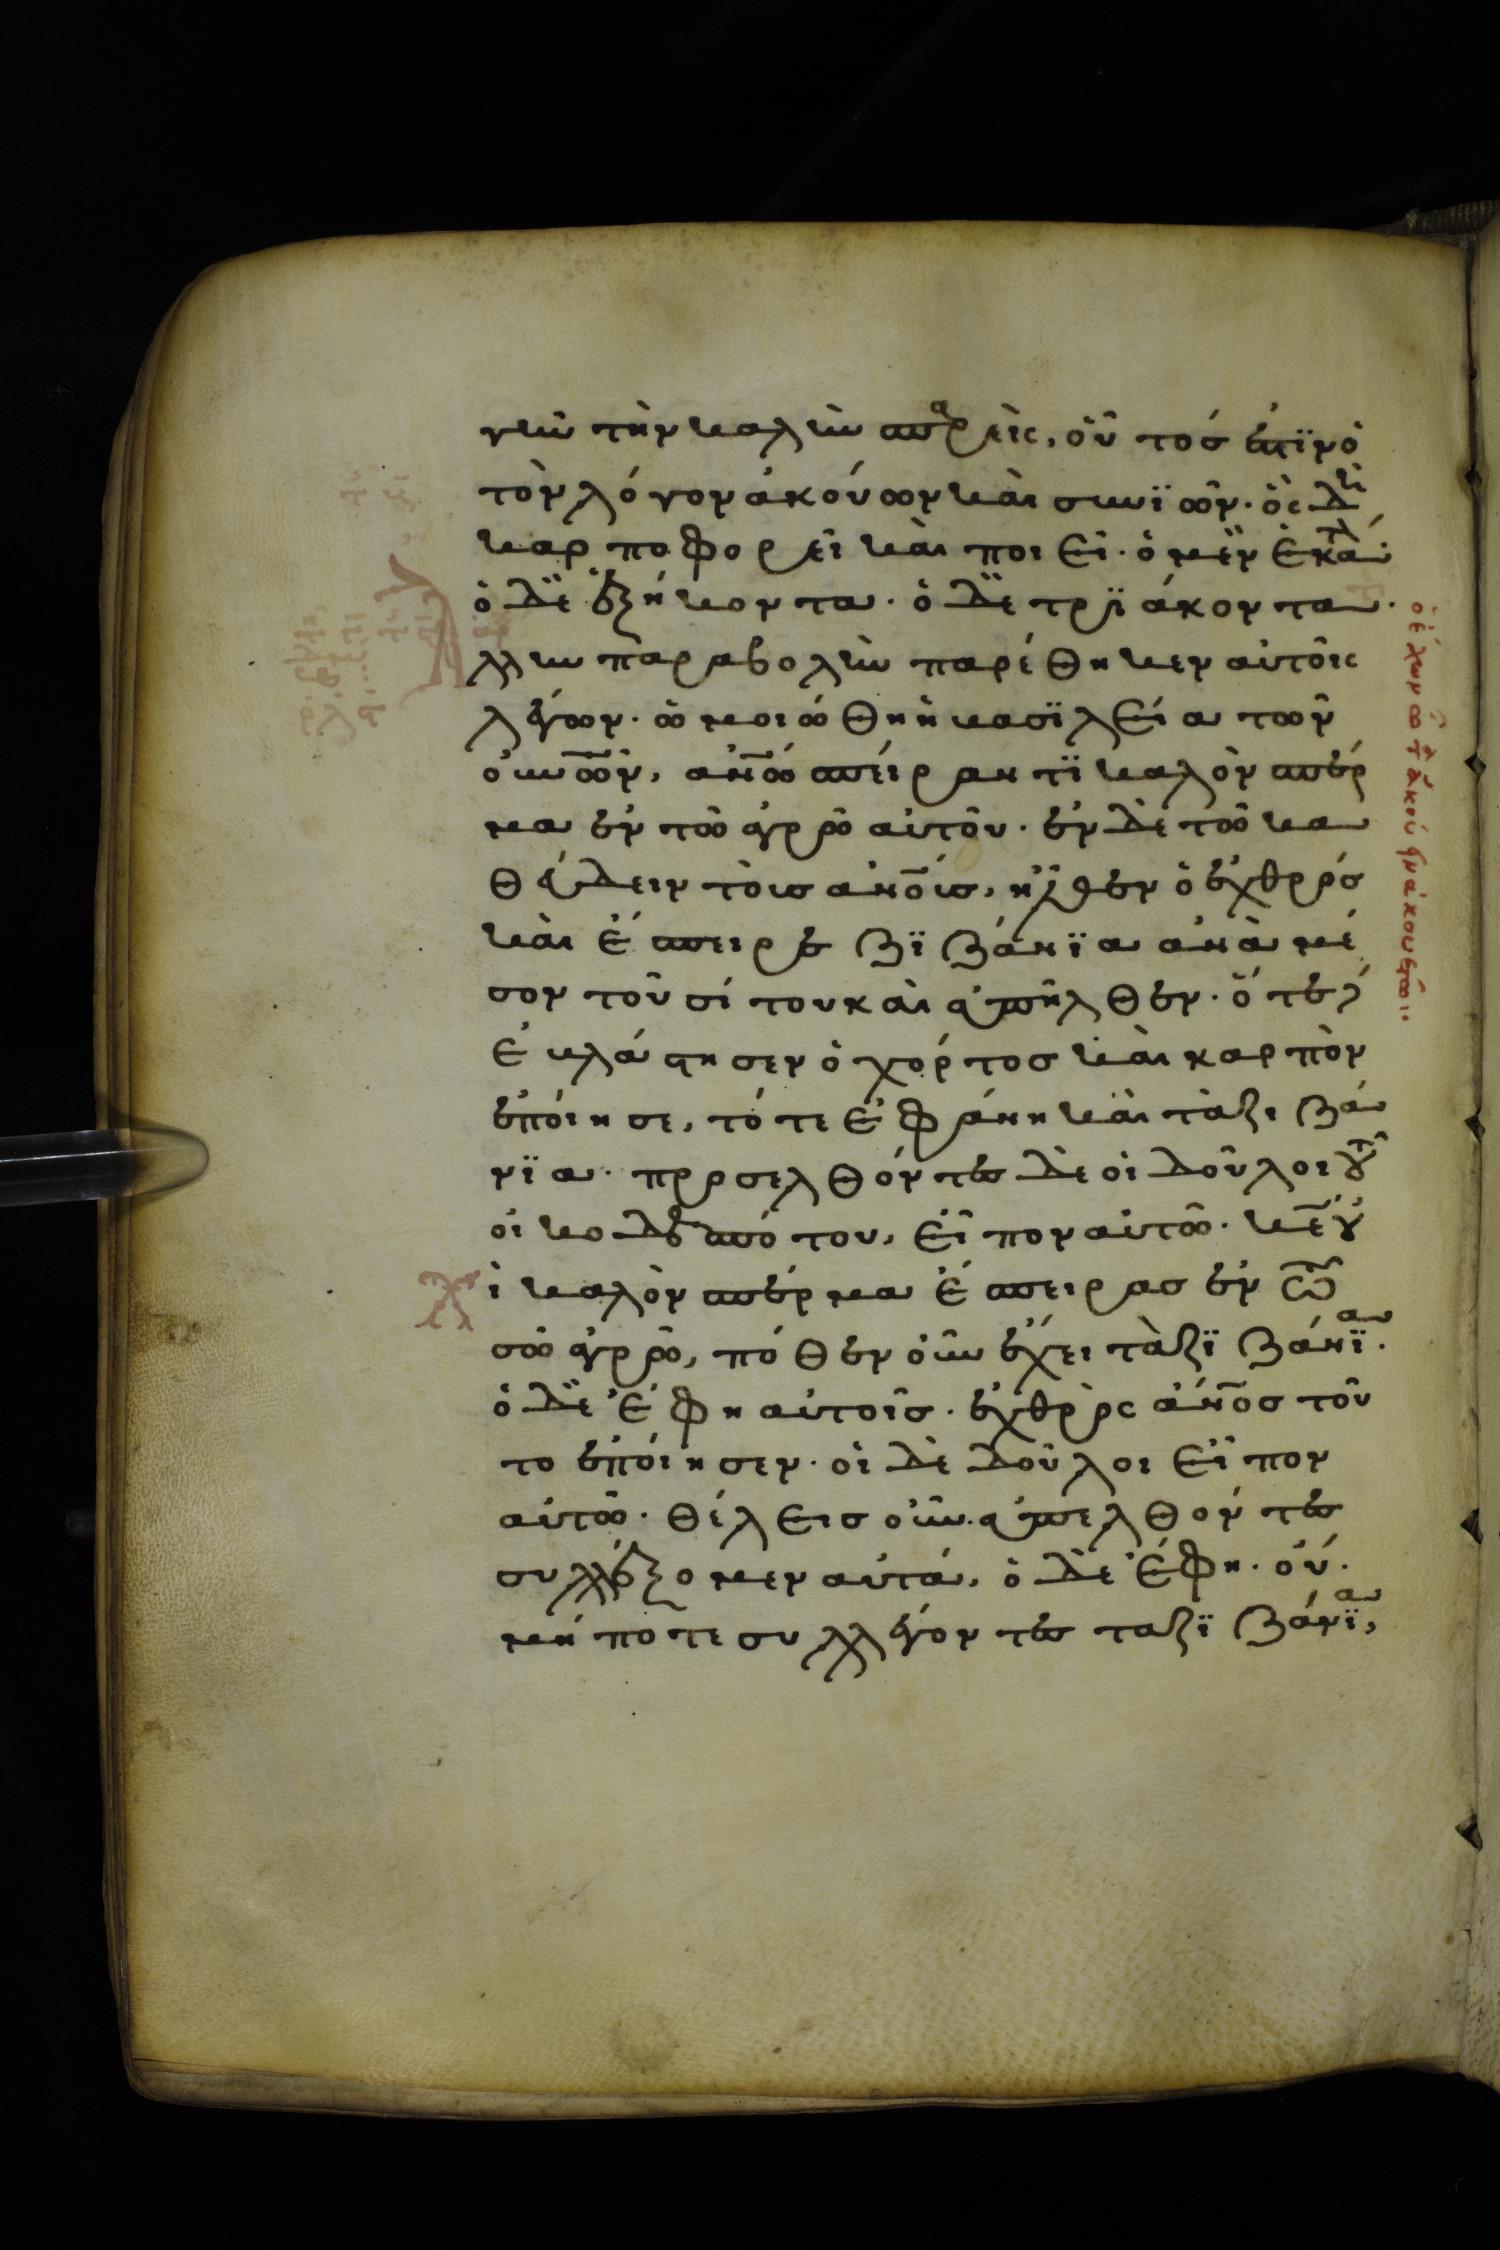 γῆν τὴν καλὴν σπαρεὶς, οὗτός ἐστϊν ὁ
τὸν λόγον ἀκούων καὶ συνϊῶν· ὃς δὴ
καρποφορεῖ καὶ ποιεῖ· ὁ μὲν ἑκατὸ·
ὁ δὲ ἑξήκοντα· ὁ δὲ τρϊάκοντα·
λλην παραβολὴν παρέθηκεν αὐτοῖς
λέγων· ὡμοιώθη ἡ βασϊλεία τῶν
οὐνῶν, ἀνῶ σπείραντϊ καλὸν σπέρ
μα ἐν τῶ ἀγρῶ αὐτοῦ· ἐν δὲ τῶ κα
θεύδειν τοὺς ἀνους, ἦλθεν ὁ ἐχθρός
καὶ ἔσπειρε ζϊζάνϊα ἀνὰ μέ
σον τοῦ σίτου καὶ ἀπῆλθεν· ὅτε
ἐβλάστησεν ὁ χόρτος καὶ καρπὸν
ἐποίησε, τότε ἐφάνη καὶ τὰ ζιζά
νϊα· προσελθόντες δὲ οἱ δοῦλοι τοῦ
οἰκοδεσπότου, εἶπον αὐτῶ· κε οὐ
χὶ καλὸν σπέρμα ἔσπειρας ἐν τῶ
σῶ ἀγρῶ, πόθεν οὖν ἔχει τὰ ζϊζάνϊα·
ὁ δὲ ἔφη αὐτοῖς· ἐχθρὸς ἄνος τοῦ
το ἐποίησεν· οἱ δὲ δοῦλοι εἶπον
αὐτῶ· θέλεις οὖν ἀπελθόντες
συλλέξομεν αὐτά, ὁ δὲ ἔφη· οὔ·
μήποτε συλλέγοντες τα ζϊζάνϊα,
ὁ ἔχων ὦτα ἀκούειν ἀκουέτω·